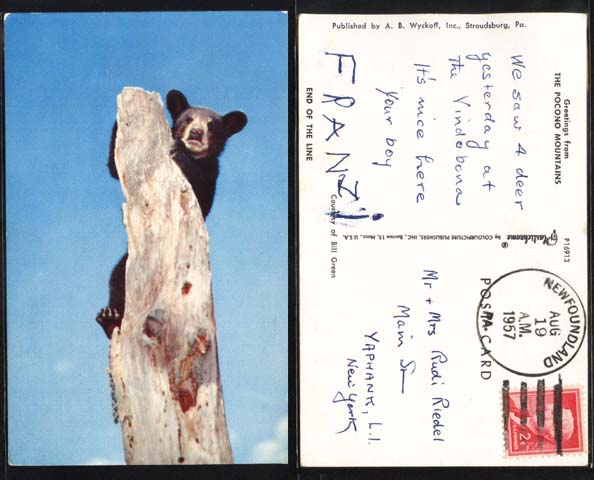 Published by A. B. Wyckoff, Inc., Stroudsburg, Pa.
Greetings from
THE POCONO MOUNTAINS
We saw 4 deer
yesterday at
The Vindobona
It's nice here
your boy
FRANZ
END OF THE LINE
Courtesy of Bill Green
P16913
Plastichrome ®
by COLOURPICTURE PUBLISHERS, INC., Boston 15, Mass., U.S.A.
POST CARD
NEWFOUNDLAND
AUG
19
A.M.
1957
PA.
2¢
Mr + Mrs Rudi Riedel
Main St
YAPHANK, L.I.
New York